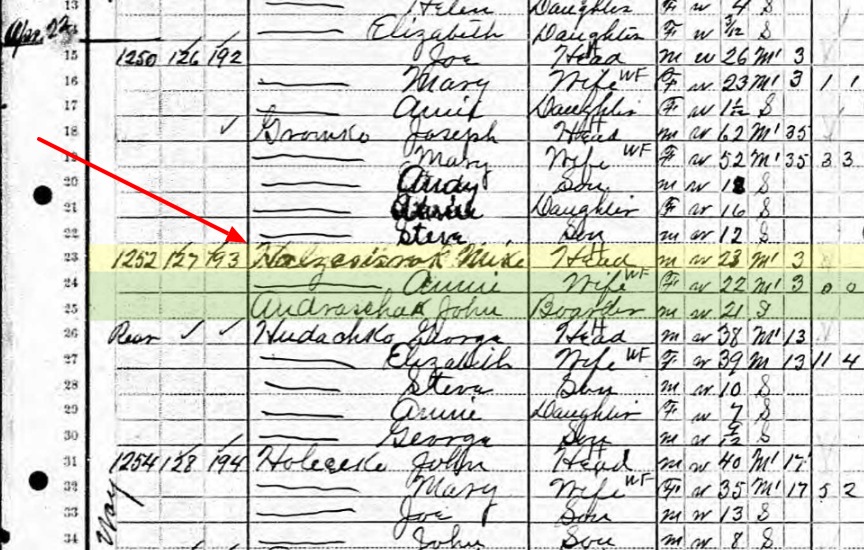 13 Helen Daughter F w 4 S
Apr. 22 14 Elizabeth Daughter F w 3/12 S
15 1250 126 192 Joe Head m w 26 M1 3
16 Mary Wife WF F w 23 M1 3 1 1
17 Daughter F w 1½ S
18 ✓ Joseph Head m w 62 M1 35
19 Mary Wife WF F w 52 M1 35 3 3
20 Andy Son m w 18 S
21 Annie Daughter F w 16 S
22 Steve Son m w 12 S
23 1252 127 193 Mike Head m w 23 M1 3
24 Annie Wife WF F w 22 M1 3 0 0
25 John Boarder m w 21 S
26 Rear ✓ ✓ Hudachko George Head m w 38 M1 13
27 Elizabeth Wife WF F w 39 M 13 11 4
28 Steve Son m w 10 S
29 Annie Daughter F w 7 S
30 George Son m w S
31 1254 128 194 John Head m w 40 M1 17
32 Mary Wife WF F w 35 M1 17 5 2
33 Joe Son m w 13 S
34 John Son m w 8 S